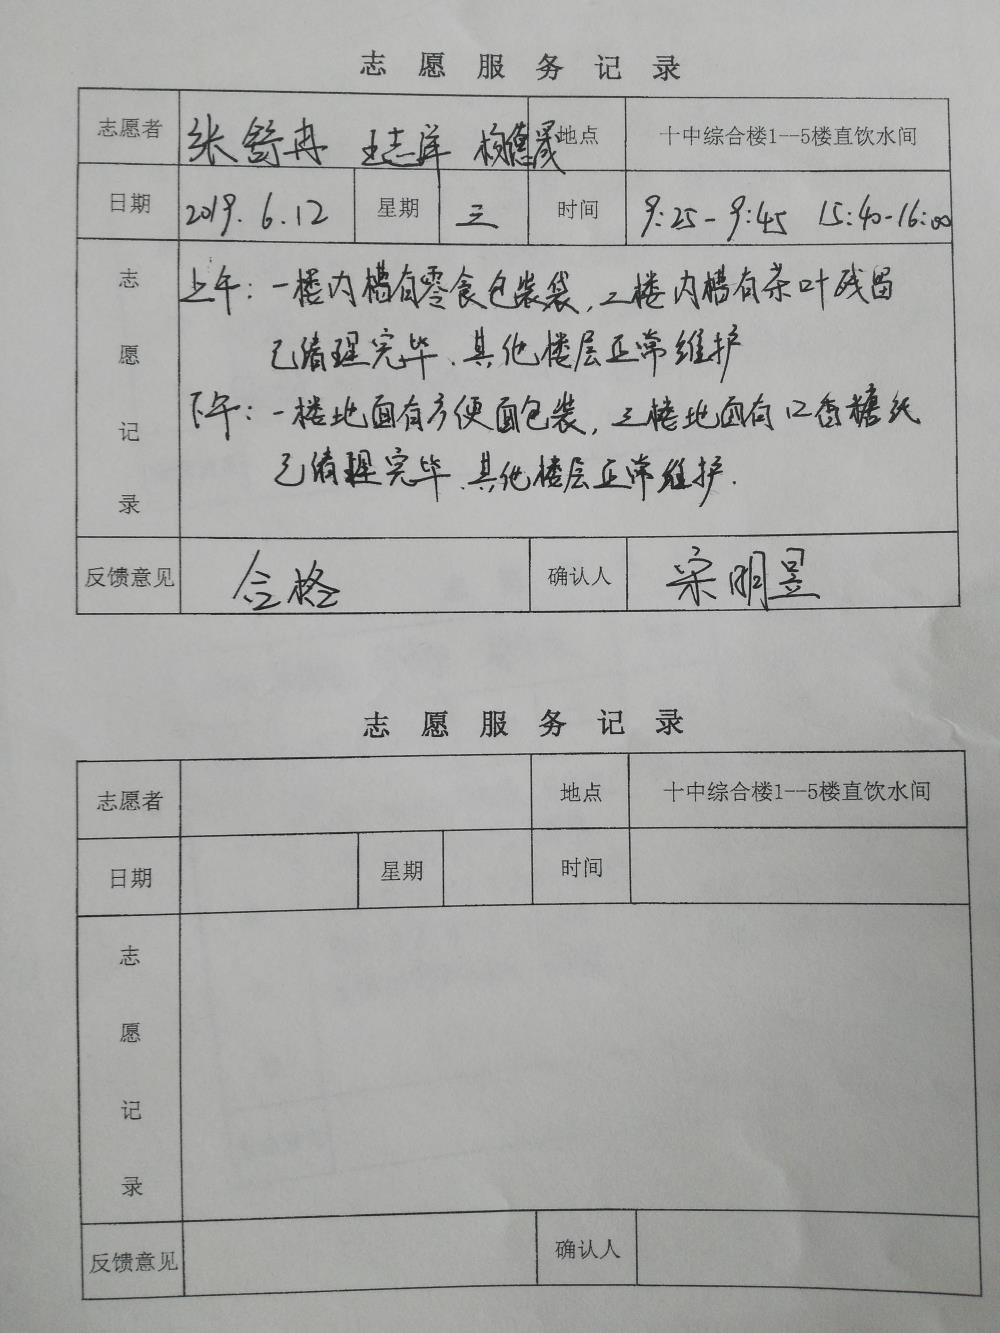 志愿服务记录
志愿者 张舒冉 王志洋 杨德晟 地点 十中综合楼1--5楼直饮水间
日期 2019.6.12 星期 三 时间 9:25-9:45 15:40-16:00
志愿记录
上午：一楼内槽有零食包装袋，二楼内槽有茶叶残留
已清理完毕、其他楼层正常维护
下午：一楼地面有方便面包装，三楼地面有口香糖纸
已清理完毕、其他楼层正常维护.
反馈意见 合格 确认人 宋明昱
志愿服务记录
志愿者 地点 十中综合楼1--5楼直饮水间
日期 星期 时间
志愿记录
反馈意见 确认人